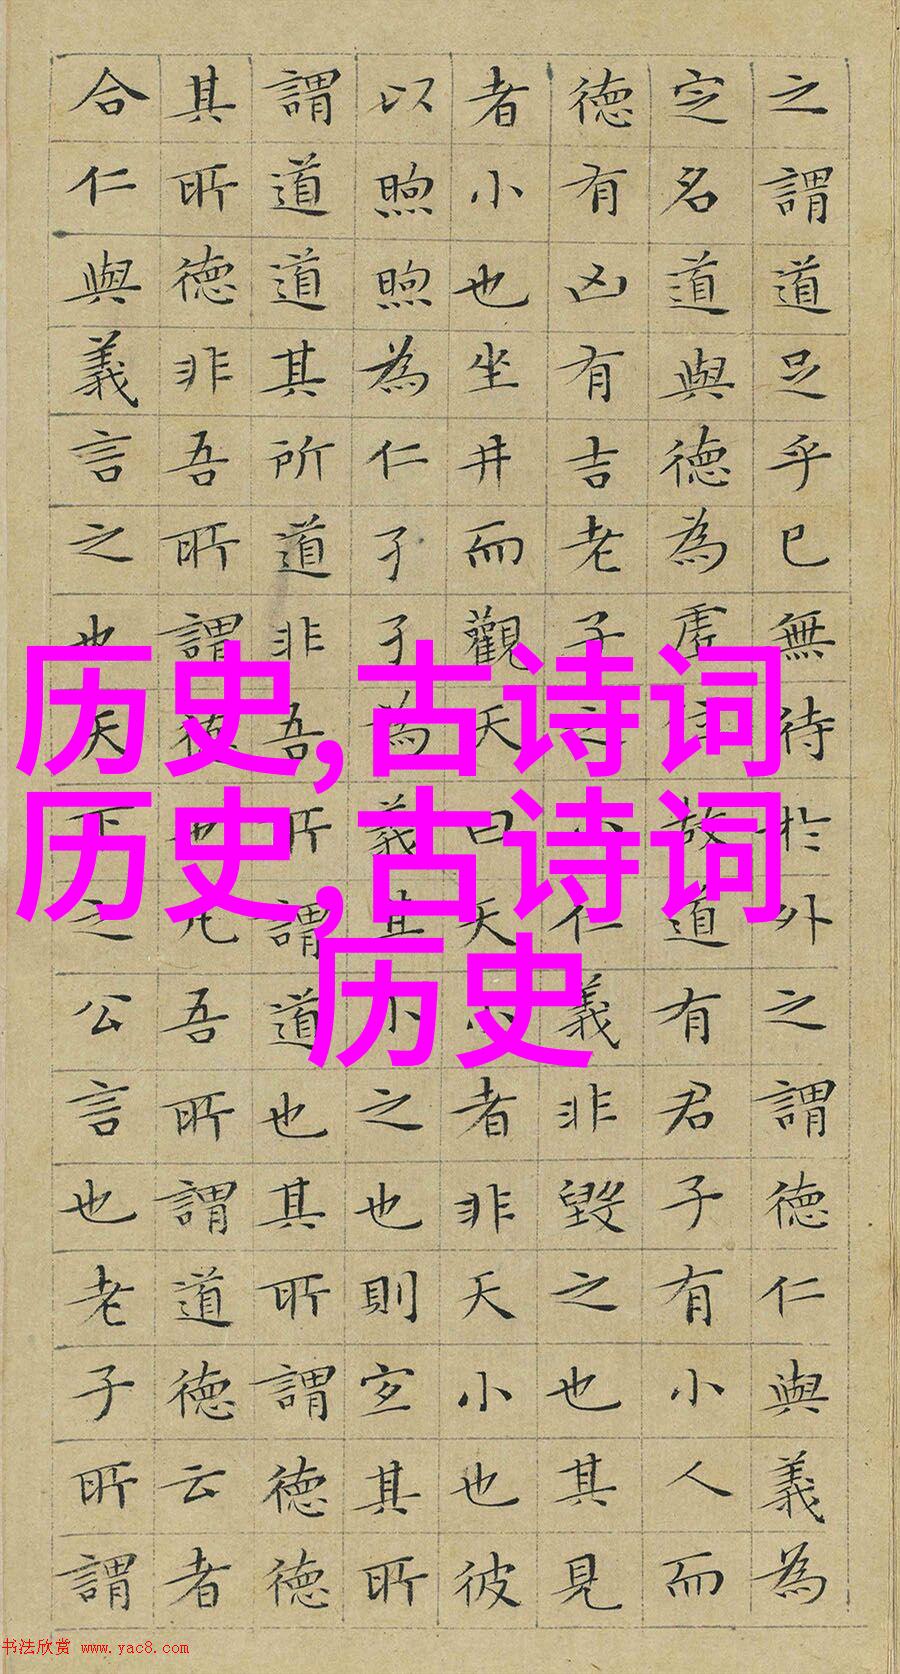 之謂道足乎已無待於外之謂德仁與義為
定名道與德為虛位故道有君子有小人而
德有凶有吉老子之小仁義非毀之也其見
者小也坐井而觀天曰天小者非天小也彼
以煦煦為仁孑孑為義其小之也則宜其所
謂道道其所道非吾所謂道也其所謂德德
其所德非吾所謂德也凡吾所謂道德云者
合仁與義言之也天下之公言也老子所謂
历史,古诗词
历史,古诗词
历史
书法欣赏 www.yac8.com